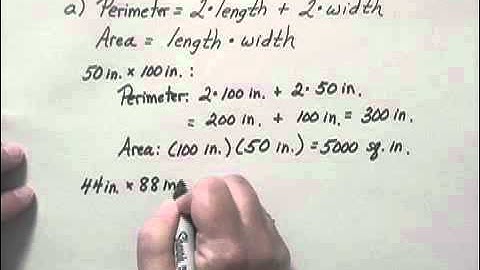 a) Perimeter = 2·length + 2·width
Area = length·width
50 in. × 100 in. :
Perimeter: 2·100 in. + 2·50 in.
= 200 in. + 100 in. = 300 in.
Area: (100 in.)(50 in.) = 5000 sq. in.
44 in. × 88